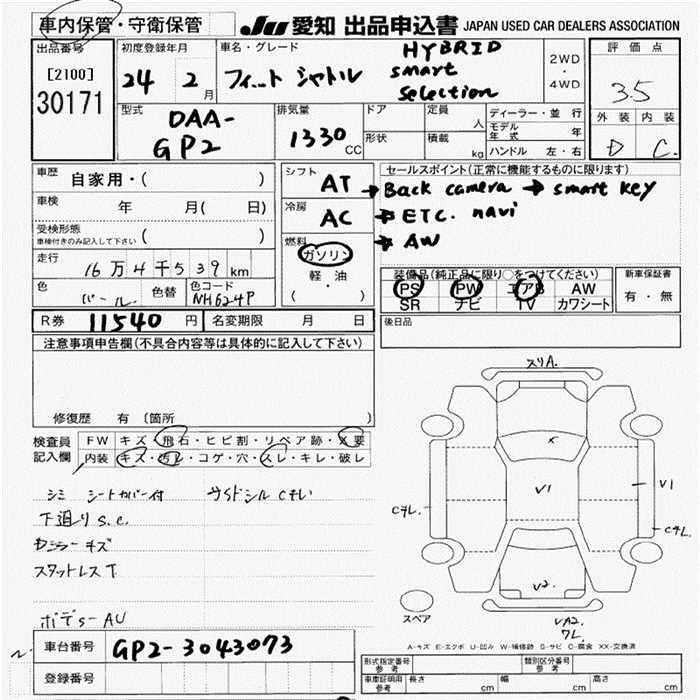 車内保管・守衛保管
JU 愛知 出品申込書 JAPAN USED CAR DEALERS ASSOCIATION
出品番号
[2100]
30171
初度登録年月
24 2 月
車名・グレード
フィット シャトル
HYBRID
smart
selection
2WD
・
4WD
評価点
3.5
外装 内装
D C.
型式
DAA-
GP2
排気量
1330 CC
ドア
形状
定員 人
積載 kg
ディーラー・並行
モデル年式 年
ハンドル 左・右
車歴
自家用・( )
車検 年 月( 日)
受検形態
車検付きのみ記入して下さい ( )
走行
16万4千539 km
色
パール
色替
色コード
NH624P
シフト
AT
冷房
AC
燃料
ガソリン
軽・油
( )
セールスポイント(正常に機能するものに限ります)
→ Back camera → smart key
→ ETC. navi
→ AW
装備品(純正品に限り○をつけてください)
PS PW エアB AW
SR ナビ TV カワシート
新車保証書
有・無
R券 11540 円
名変期限 月 日
後日品
注意事項申告欄(不具合内容等は具体的に記入して下さい)
修復歴 有 〔箇所 〕
検査員
記入欄
FW キズ・飛石・ヒビ割・リペア跡・X要
内装 キズ・汚レ・コゲ・穴・スレ・キレ・破レ
シミ シートカバー付 サイドシル Cチレ
下廻り S.C.
キズ
スタットレス T
ボデS-AU
スリA.
V1
V1
Cチレ.
Cチレ.
V2.
スペア
VA2.
ワレ.
A-キズ E-エクボ U-凹み W-補修跡 S-サビ C-腐食 XX-交換済
車台番号 GP2-3043073
登録番号
型式指定番号
参考
類別区分番号
参考
車庫証明用
参考
長さ cm 幅 cm 高さ cm